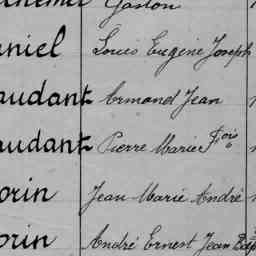 Gaston
uniel Louis Eugène Joseph
audant Armand Jean
audant Pierre Marie Fois
orin Jean Marie André
orin André Ernest Jean